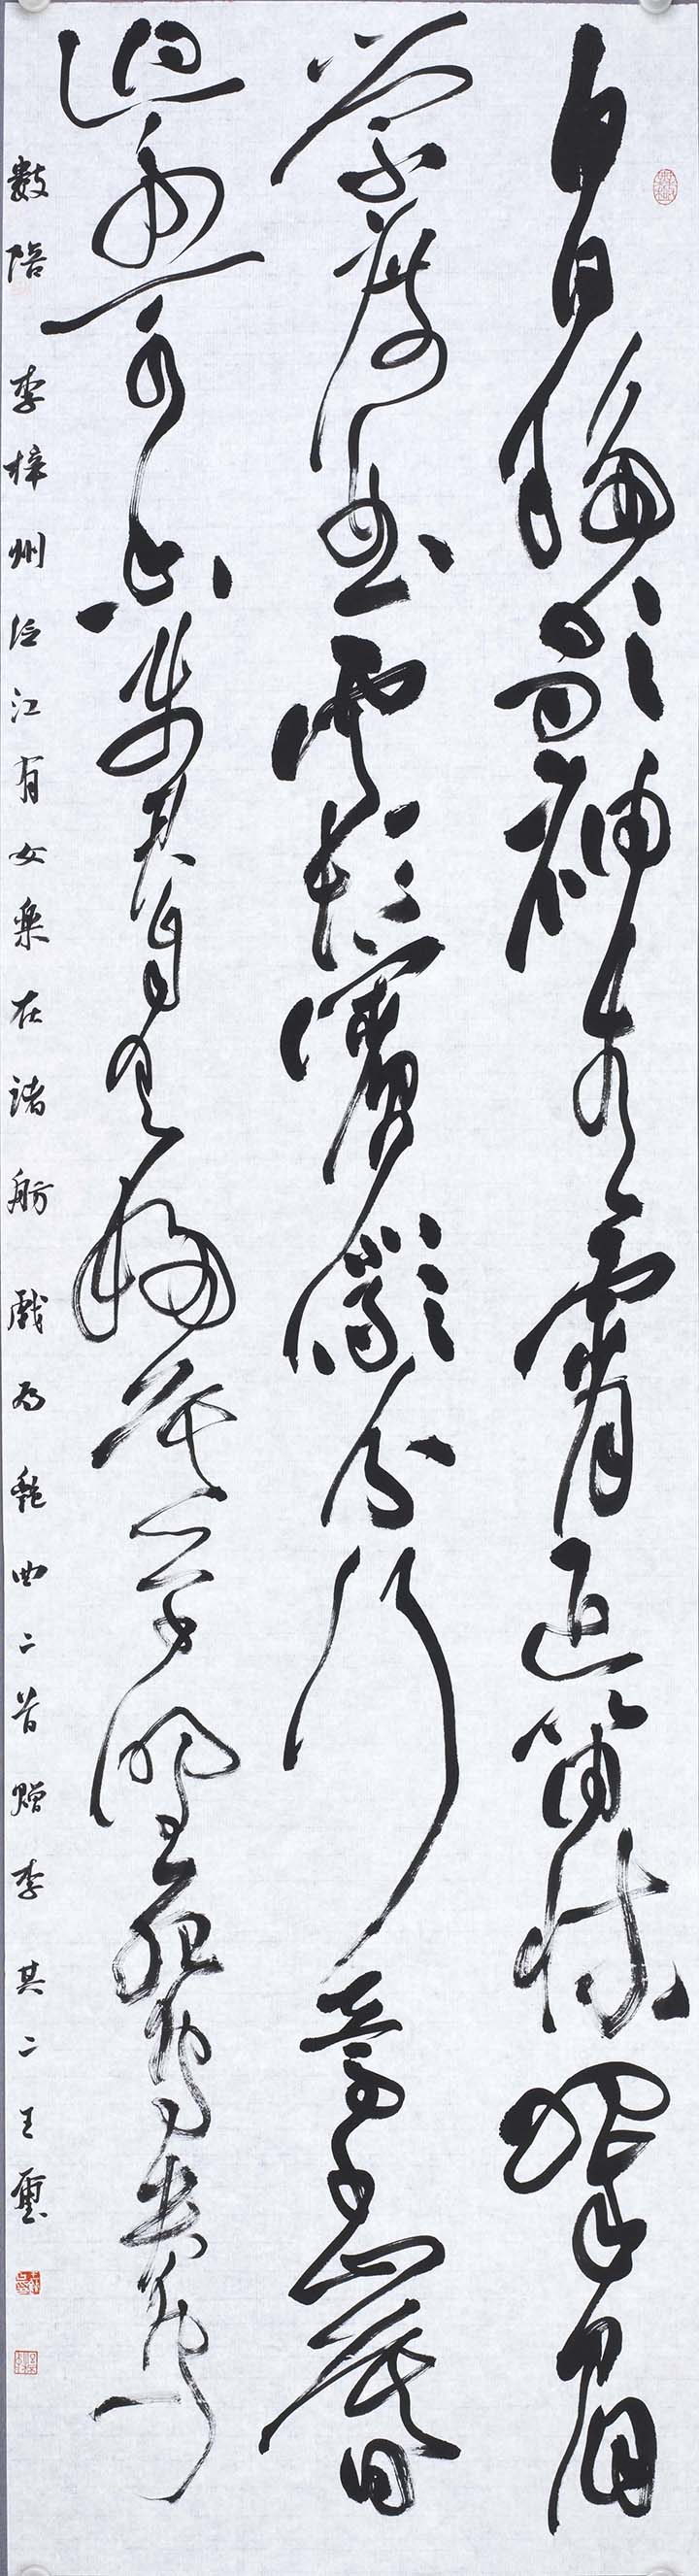 白日移歌袖青霄近笛牀翠眉
縈度曲雲鬢儼分行立馬千山暮
迴舟一水香使君自有婦莫學野鴛鴦
數陪李梓州泛江有女樂在諸舫戲為艷曲二首贈李其二王璽